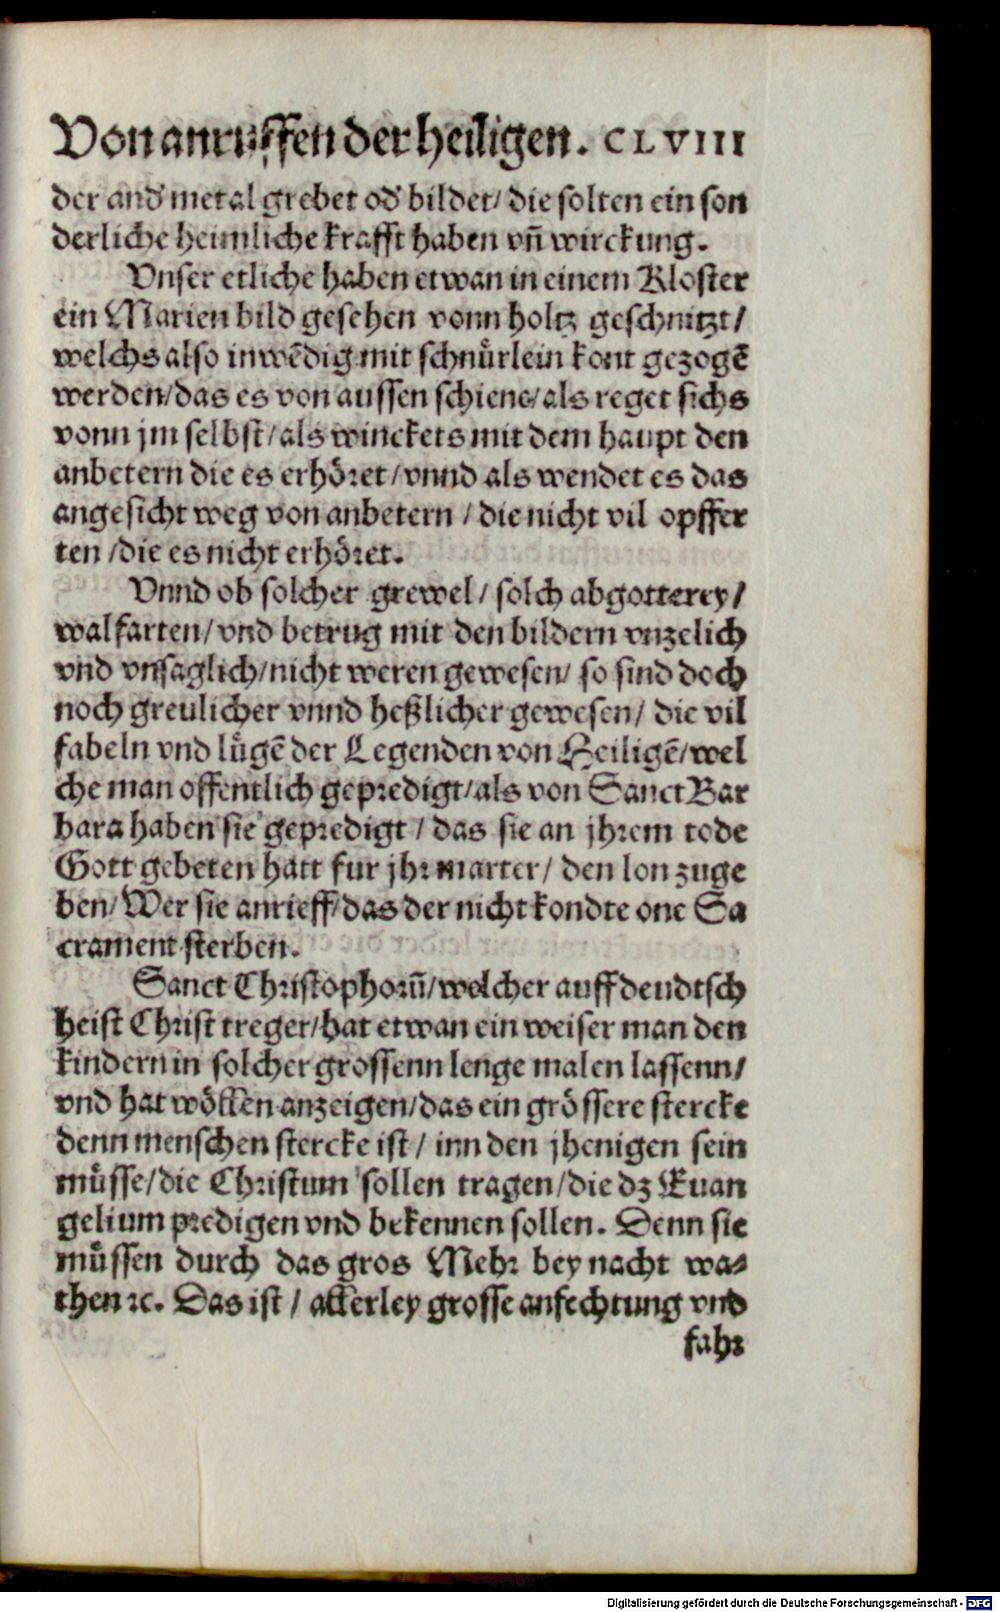 Von anruffen der heiligen. CLVIII
der and' metal grebet od' bildet/ die solten ein son
derliche heimliche krafft haben vn̄ wirckung.
Vnser etliche haben etwan in einem Kloster
ein Marien bild gesehen vonn holtz geschnitzt/
welchs also inwēdig mit schnuͤrlein kont gezogē
werden/das es von aussen schiene/als reget sichs
vonn jm selbst/als winckets mit dem haupt den
anbetern die es erhoͤret/vnnd als wendet es das
angesicht weg von anbetern/die nicht vil opffer
ten/die es nicht erhoͤret.
Vnnd ob solcher grewel/ solch abgotterey/
walfarten/vnd betrug mit den bildern vnzelich
vnd vnsaglich/nicht weren gewesen/ so sind doch
noch greulicher vnnd heßlicher gewesen/ die vil
fabeln vnd luͤgē der Legenden von Heiligē/wel
che man offentlich gepredigt/als von Sanct Bar
bara haben sie gepredigt/ das sie an jhrem tode
Gott gebeten hatt fur jhr marter/ den lon zuge
ben/Wer sie anrieff/das der nicht kondte one Sa
crament sterben.
Sanct Christophorū/welcher auff deudtsch
heist Christ treger/hat etwan ein weiser man den
kindern in solcher grossenn lenge malen lassenn/
vnd hat woͤllen anzeigen/das ein groͤssere stercke
denn menschen stercke ist/ inn den jhenigen sein
muͤsse/die Christum sollen tragen/die dz Euan
gelium predigen vnd bekennen sollen. Denn sie
muͤssen durch das gros Mehr bey nacht wa⸗
then ꝛc. Das ist/ allerley grosse anfechtung vnd
fahr
Digitalisierung gefördert durch die Deutsche Forschungsgemeinschaft - DFG